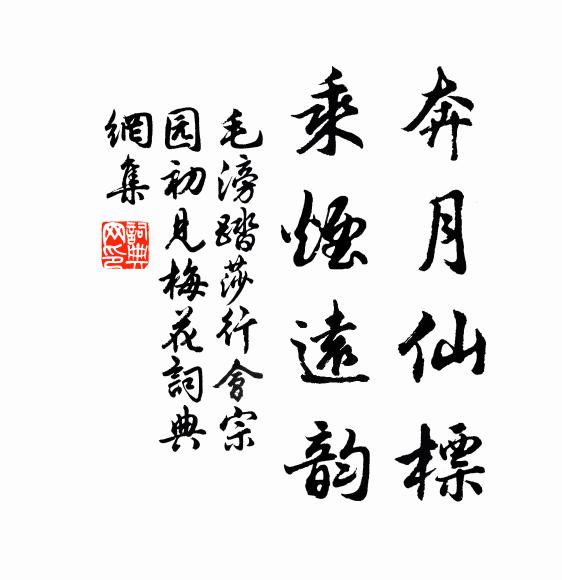 奔月仙標
乘煙遠韵
毛滂踏莎行會宗
园初見梅花詞典
網集
詞典
网印